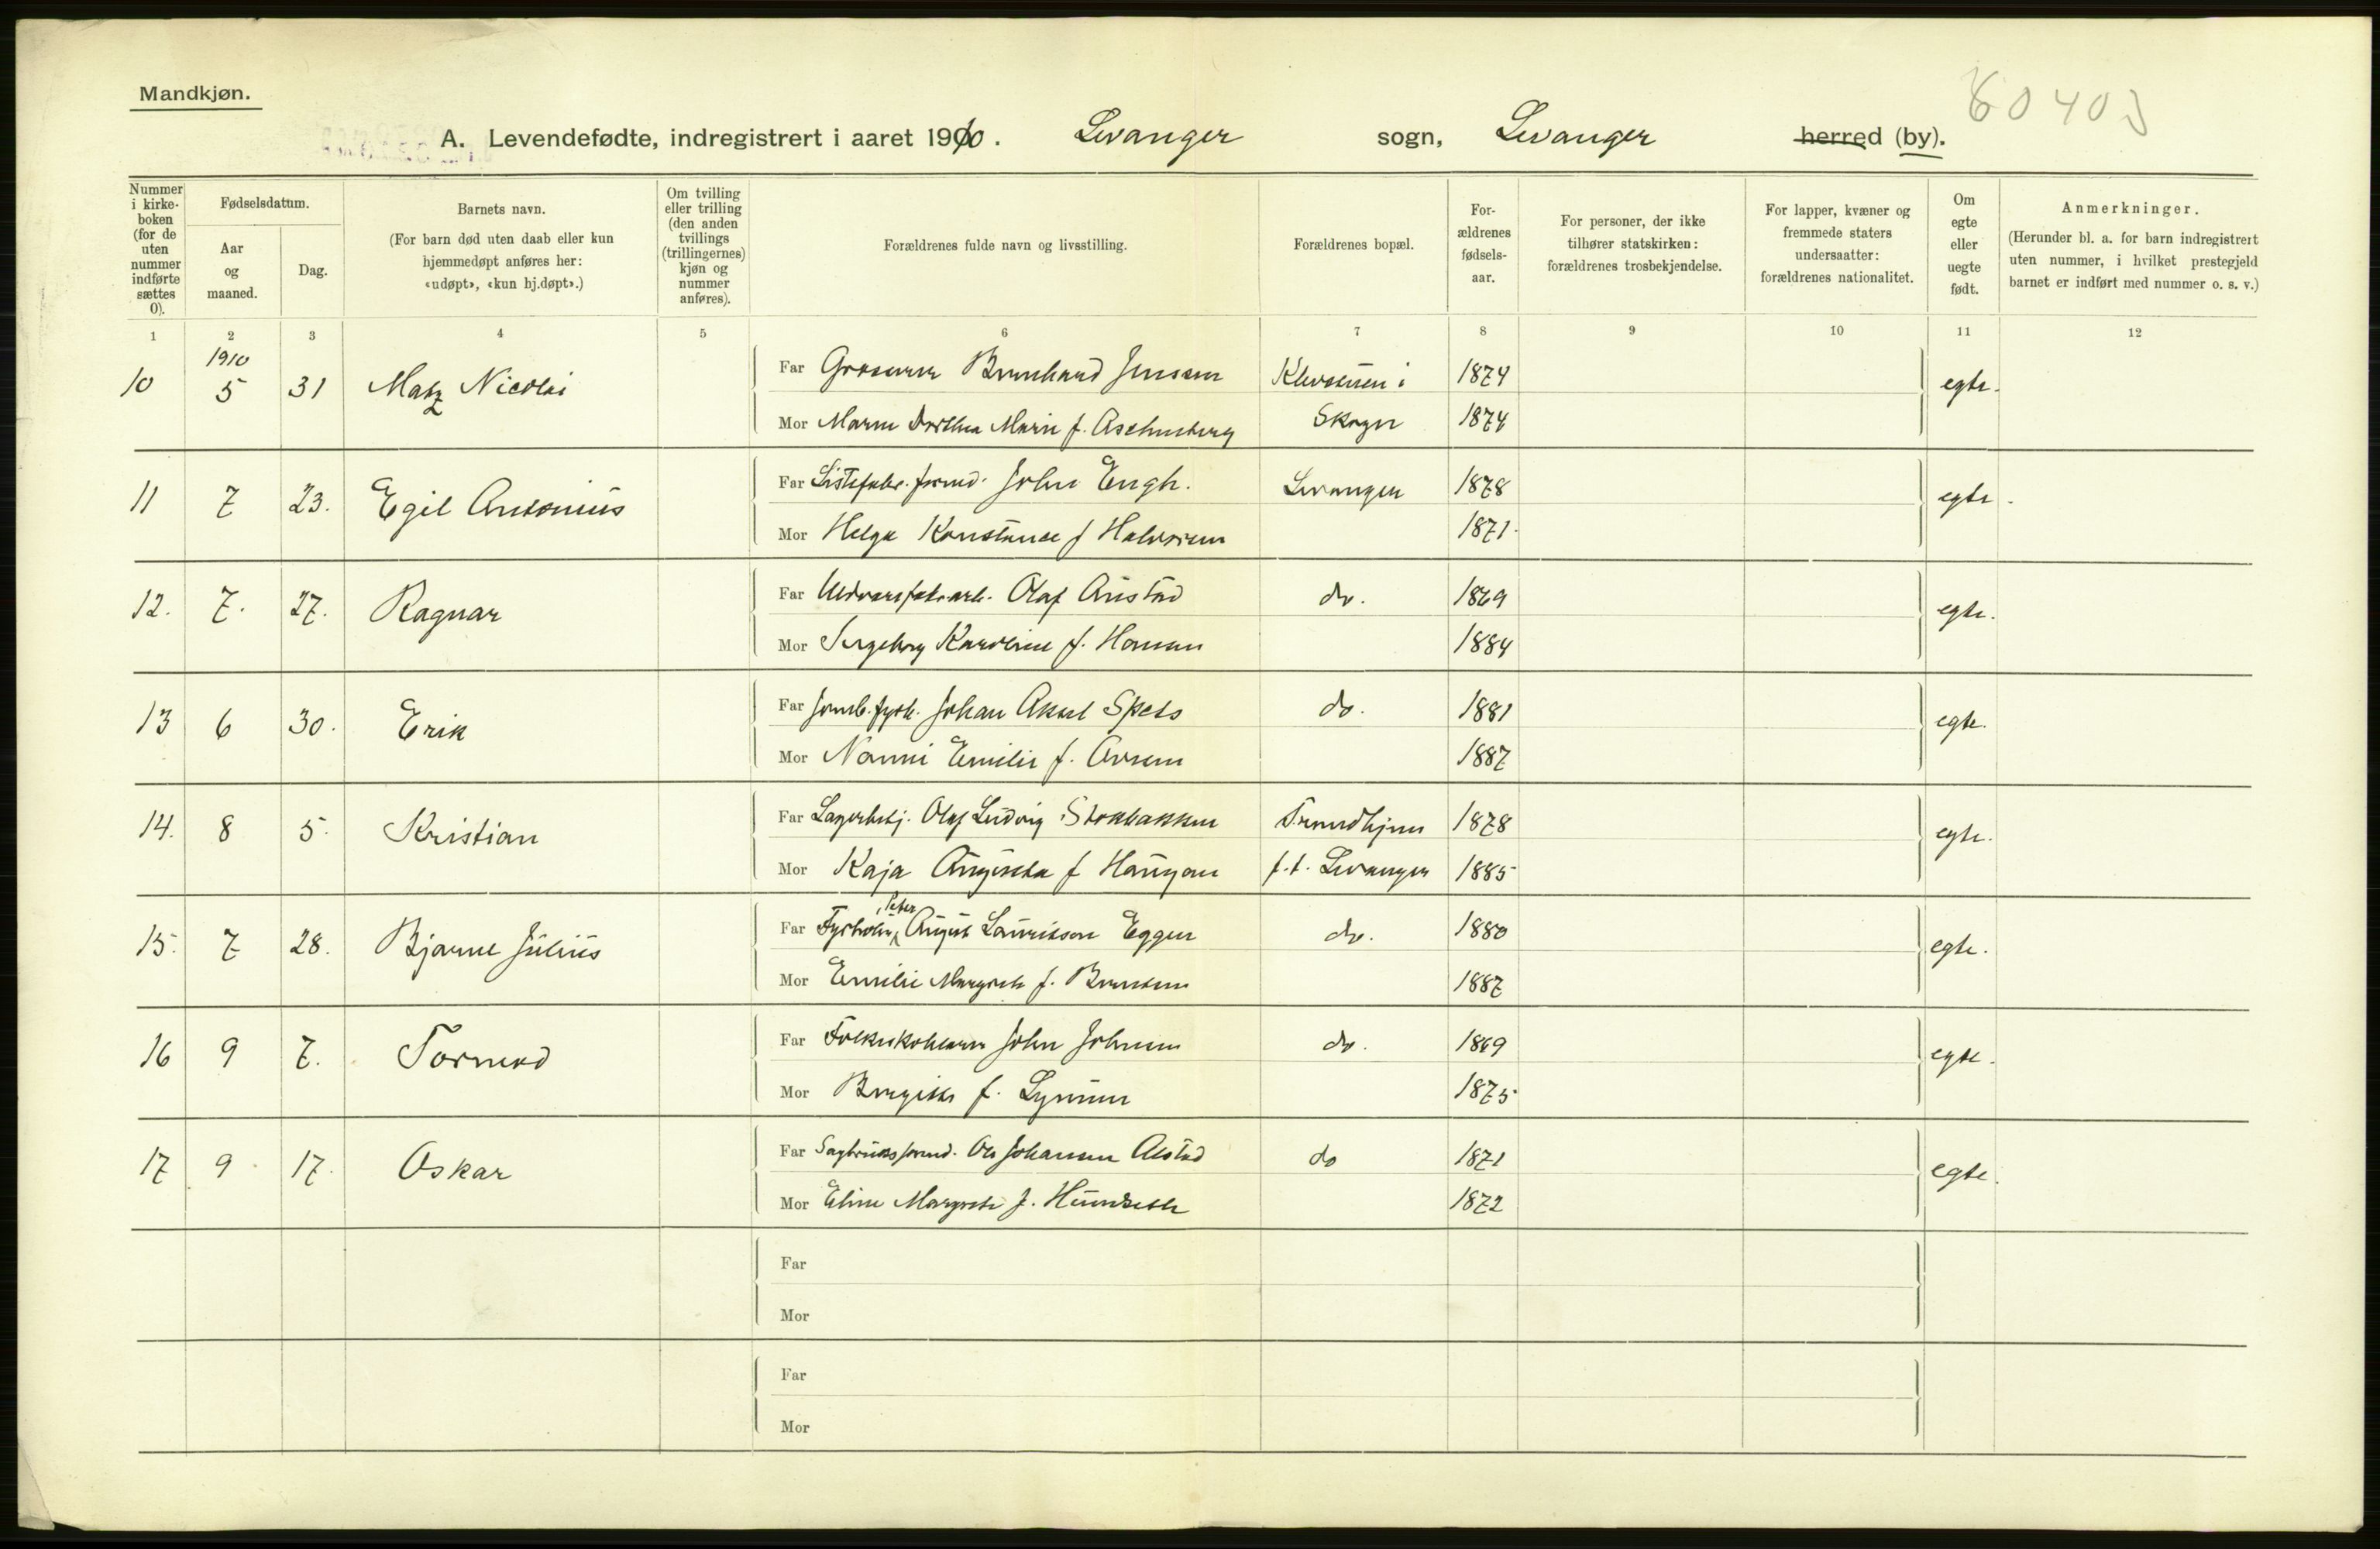 Mandkjøn.
60403
A. Levendefødte, indregistrert i aaret 1910. Levanger sogn, Levanger herred (by).
Nummer i kirke-boken (for de uten nummer indførte sættes 0).
Fødselsdatum.
Aar og maaned.
Dag.
Barnets navn.
(For barn død uten daab eller kun hjemmedøpt anføres her: «udøpt», «kun hj.døpt».)
Om tvilling eller trilling (den anden tvillings (trillingernes) kjøn og nummer anføres).
Forældrenes fulde navn og livsstilling.
Forældrenes bopæl.
For-ældrenes fødsels-aar.
For personer, der ikke tilhører statskirken: forældrenes trosbekjendelse.
For lapper, kvæner og fremmede staters undersaatter: forældrenes nationalitet.
Om egte eller uegte født.
Anmerkninger.
(Herunder bl. a. for barn indregistrert uten nummer, i hvilket prestegjeld barnet er indført med nummer o. s. v.)
1 2 3 4 5 6 7 8 9 10 11 12
1910
10 5 31 Matz Nicolai Far Grosserer Bernhard Jenssen i 1874 egte.
Mor Maren Dorthea Marie f. Skogn 1874
11 7 23. Egil Antonius Far Listefabr. formd. John Engh. Levanger 1878 egte.
Mor Helga Konstanse f Halvorsen 1871.
12. 7. 27. Ragnar Far Olaf Austad do. 1869 egte.
Mor Ingeborg Karoline f. Hansen 1884
13 6 30. Erik Far Johan Aksel Spets do. 1881 egte.
Mor Nanni Emilie f. 1887
14. 8 5. Kristian Far Lagerbetj. Olaf Ludvig Stokbakken Trondhjem 1878 egte.
Mor Kaja Augusta f Haugan f.t. Levanger 1885
15. 7 28. Bjarne Julius Far Fyrbøter, Peter August Lauritson Eggen do. 1880 egte.
Mor Emilie Margrete f. Berntsen 1887
16 9 7. Tormod Far Folkeskolelærer John Johnsen do. 1869 egte.
Mor Bergitte f. 1875
17 9. 17. Oskar Far Sagbruksformd. Ole Johansen Alstad do 1871 egte.
Mor Eline Margrete f. 1872
Far
Mor
Far
Mor